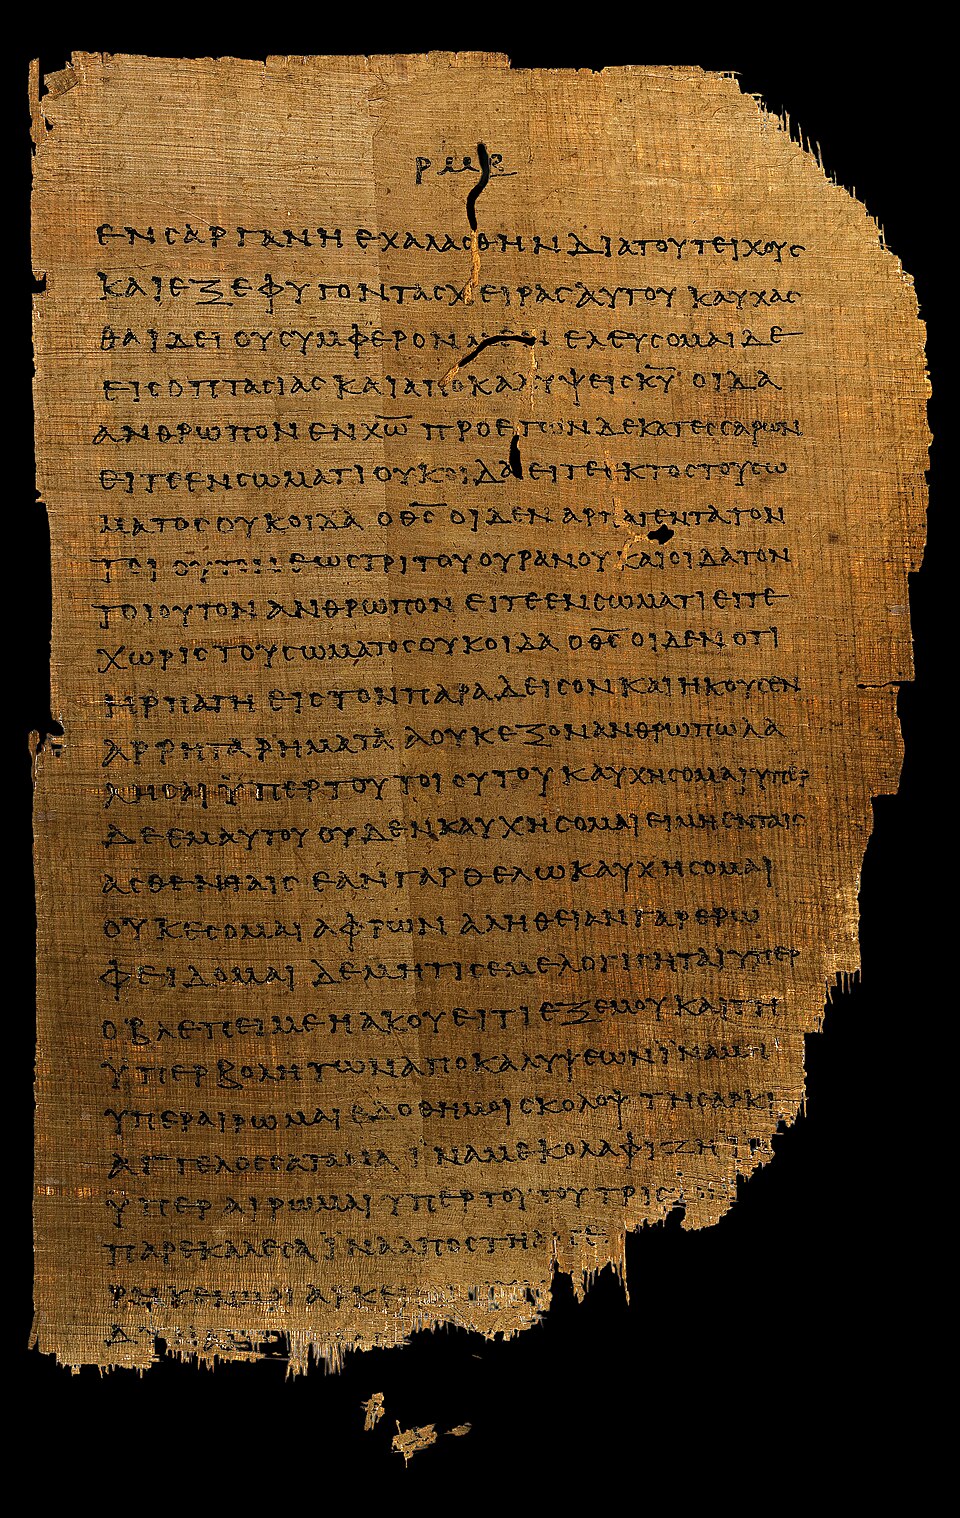 ρμβ
ενσαργανηεχαλασθηνδιατουτειχους
καιεξεφυγοντασχειρασαυτουκαυχασ
θαιδειουσυμφερονμενελευσομαιδε
ειςοπτασιαςκαιαποκαλυψεισκ̅υ̅οιδα
ανθρωπονενχ̅ω̅προετωνδεκατεσσαρων
ειτεενσωματιουκοιδαειτεεκτοςτουσω
ματοςουκοιδαοθ̅ς̅οιδεναρπαγεντατον
τοιουτονεωςτριτουουρανουκαιοιδατον
τοιουτονανθρωπονειτεενσωματιειτε
χωριςτουσωματοςουκοιδαοθ̅ς̅οιδενοτι
ηρπαγηειςτονπαραδεισονκαιηκουσεν
αρρηταρηματααουκεξονανθρωπωλα
λησαιϋπερτουτοιουτουκαυχησομαιυπερ
δεεμαυτουουδενκαυχησομαιειμηενταις
ασθενειαιςεανγαρθελωκαυχησομαι
ουκεσομαιαφρωναληθειανγαρερω
φειδομαιδεμητιςεμελογισηταιυπερ
οβλεπειμεηακουειτιεξεμουκαιτη
ϋπερβολητωναποκαλυψεωνϊναμη
υπεραιρωμαιεδοθημοισκολοψτησαρκι
αγγελοςσαταναϊναμεκολαφιζη
ϋπεραιρωμαιυπερτουτουτρις
παρεκαλεσαϊνααποστη